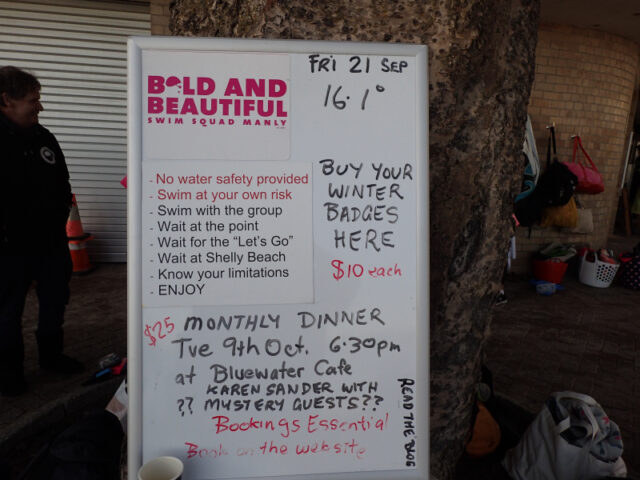 FRI 21 SEP
16.1°
BOLD AND
BEAUTIFUL
SWIM SQUAD MANLY
- No water safety provided
- Swim at your own risk
- Swim with the group
- Wait at the point
- Wait for the “Let's Go”
- Wait at Shelly Beach
- Know your limitations
- ENJOY
BUY YOUR
WINTER
BADGES
HERE
$10 each
$25 MONTHLY DINNER
Tue 9th Oct. 6.30pm
at Bluewater Cafe
KAREN SANDER WITH
?? MYSTERY GUESTS??
Bookings Essential
Book on the website
READ THE BLOG